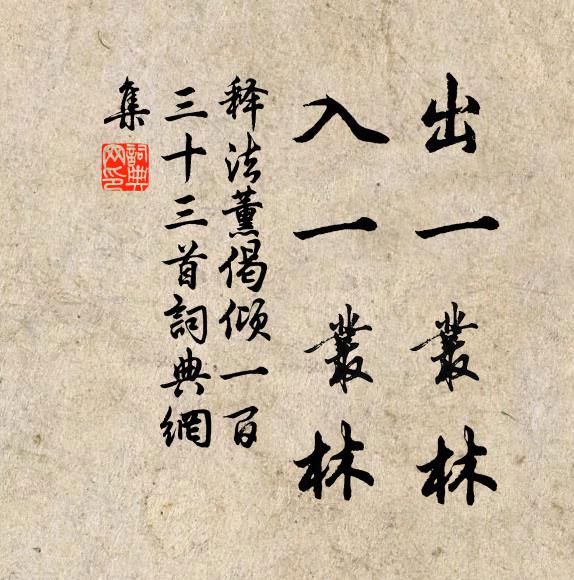 出一叢林
入一叢林
释法薰偈倾一百
三十三首詞典網
集
詞典網印